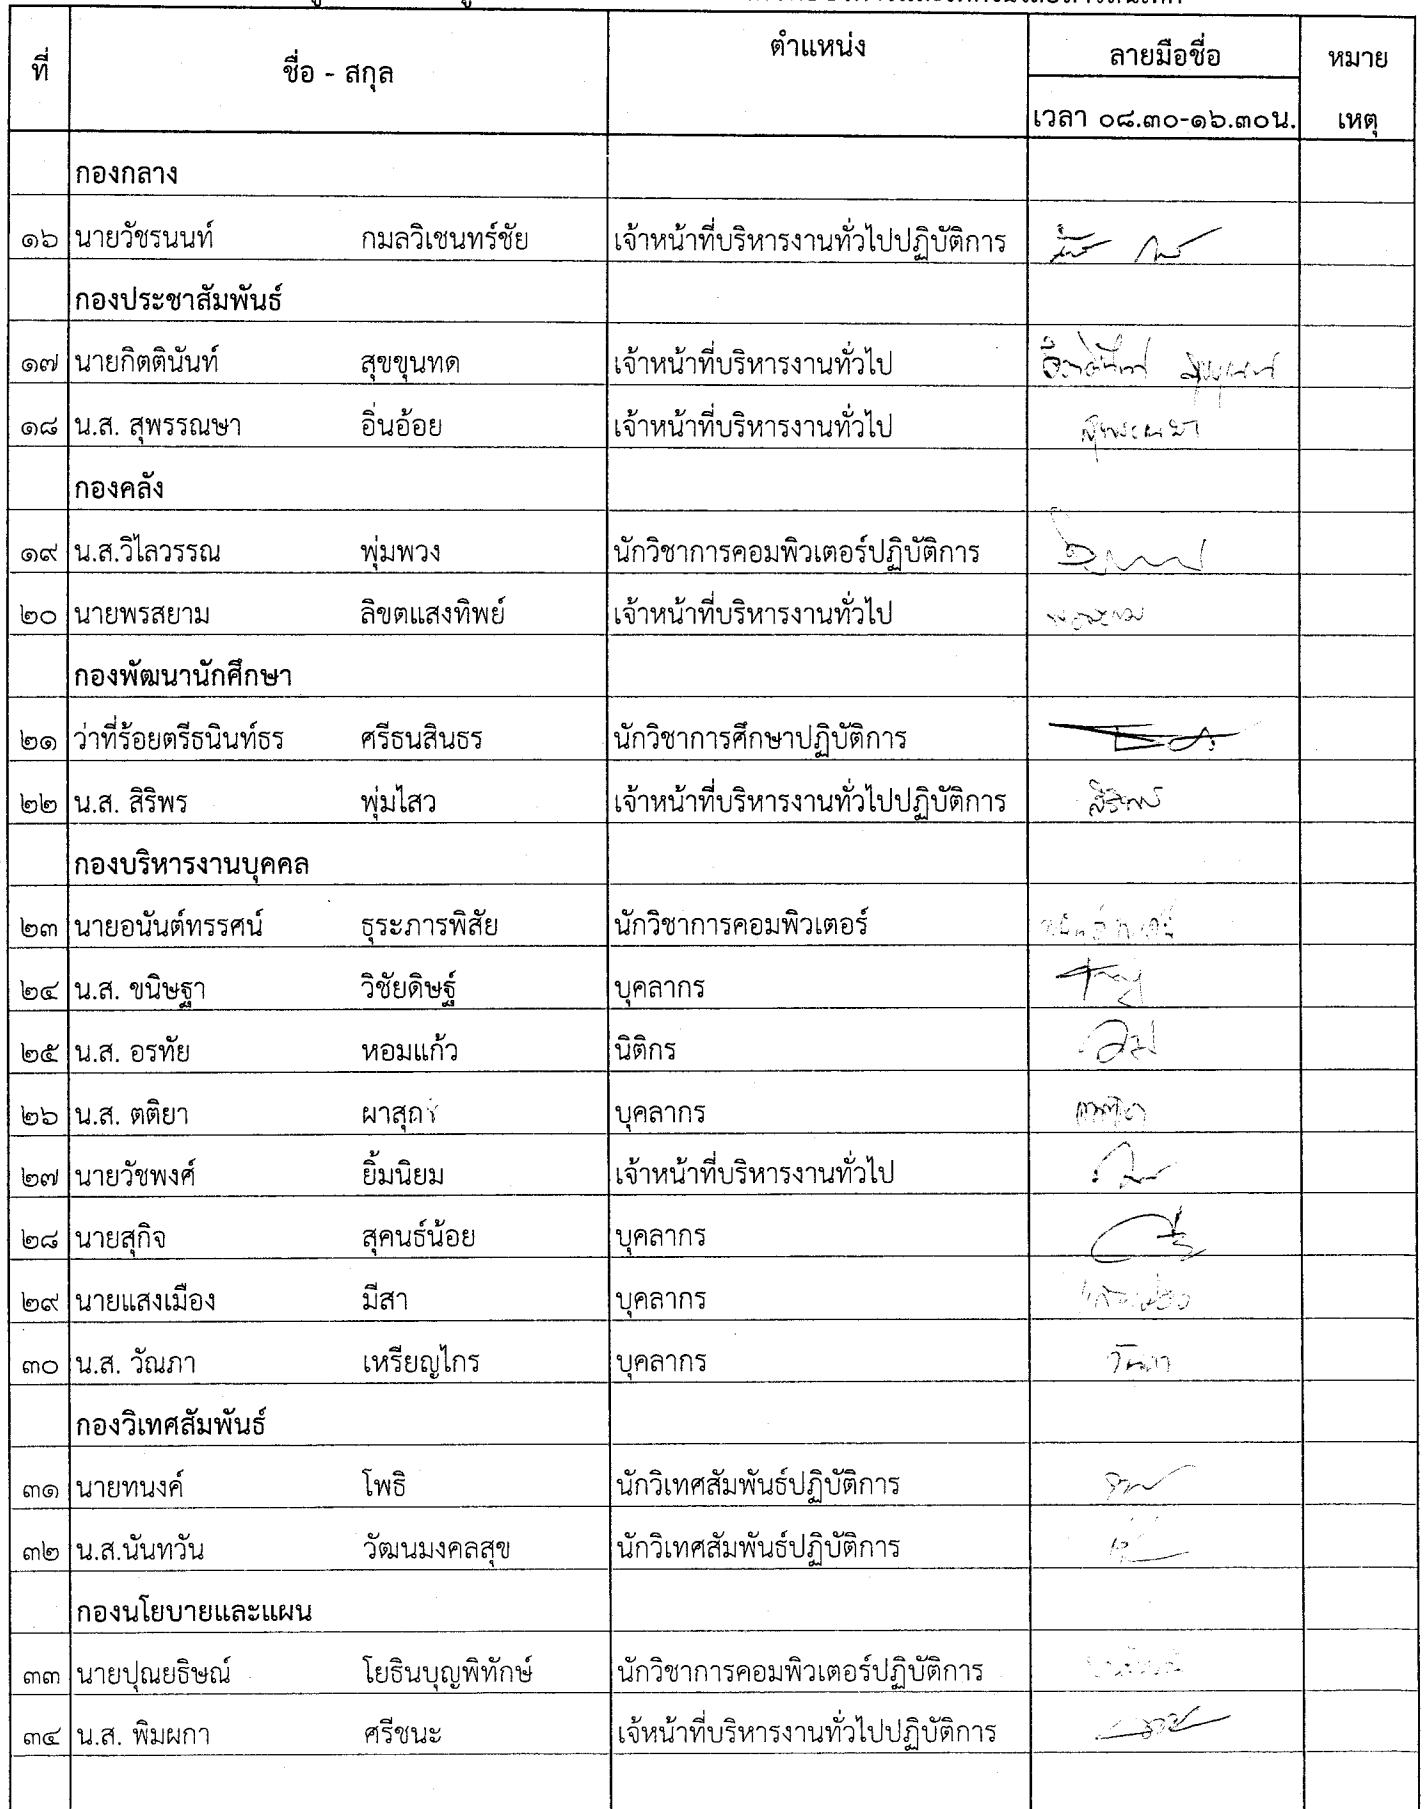 ที่ ชื่อ - สกุล ตำแหน่ง ลายมือชื่อ หมาย
เวลา ๐๘.๓๐-๑๖.๓๐น. เหตุ
กองกลาง
๑๖ นายวัชรนนท์ กมลวิเชนทร์ชัย เจ้าหน้าที่บริหารงานทั่วไปปฏิบัติการ
กองประชาสัมพันธ์
๑๗ นายกิตตินันท์ สุขขุนทด เจ้าหน้าที่บริหารงานทั่วไป
๑๘ น.ส. สุพรรณษา อิ่นอ้อย เจ้าหน้าที่บริหารงานทั่วไป สุพรรณษา
กองคลัง
๑๙ น.ส.วิไลวรรณ พุ่มพวง นักวิชาการคอมพิวเตอร์ปฏิบัติการ
๒๐ นายพรสยาม ลิขตแสงทิพย์ เจ้าหน้าที่บริหารงานทั่วไป พรสยาม
กองพัฒนานักศึกษา
๒๑ ว่าที่ร้อยตรีธนินท์ธร ศรีธนสินธร นักวิชาการศึกษาปฏิบัติการ
๒๒ น.ส. สิริพร พุ่มไสว เจ้าหน้าที่บริหารงานทั่วไปปฏิบัติการ สิริพร
กองบริหารงานบุคคล
๒๓ นายอนันต์ทรรศน์ ธุระภารพิสัย นักวิชาการคอมพิวเตอร์
๒๔ น.ส. ขนิษฐา วิชัยดิษฐ์ บุคลากร
๒๕ น.ส. อรทัย หอมแก้ว นิติกร
๒๖ น.ส. ตติยา บุคลากร
๒๗ นายวัชพงศ์ ยิ้มนิยม เจ้าหน้าที่บริหารงานทั่วไป
๒๘ นายสุกิจ สุคนธ์น้อย บุคลากร
๒๙ นายแสงเมือง มีสา บุคลากร
๓๐ น.ส. วัณภา เหรียญไกร บุคลากร วัณภา
กองวิเทศสัมพันธ์
๓๑ นายทนงค์ โพธิ นักวิเทศสัมพันธ์ปฏิบัติการ
๓๒ น.ส.นันทวัน วัฒนมงคลสุข นักวิเทศสัมพันธ์ปฏิบัติการ
กองนโยบายและแผน
๓๓ นายปุณยธิษณ์ โยธินบุญพิทักษ์ นักวิชาการคอมพิวเตอร์ปฏิบัติการ
๓๔ น.ส. พิมผกา ศรีชนะ เจ้หน้าที่บริหารงานทั่วไปปฏิบัติการ